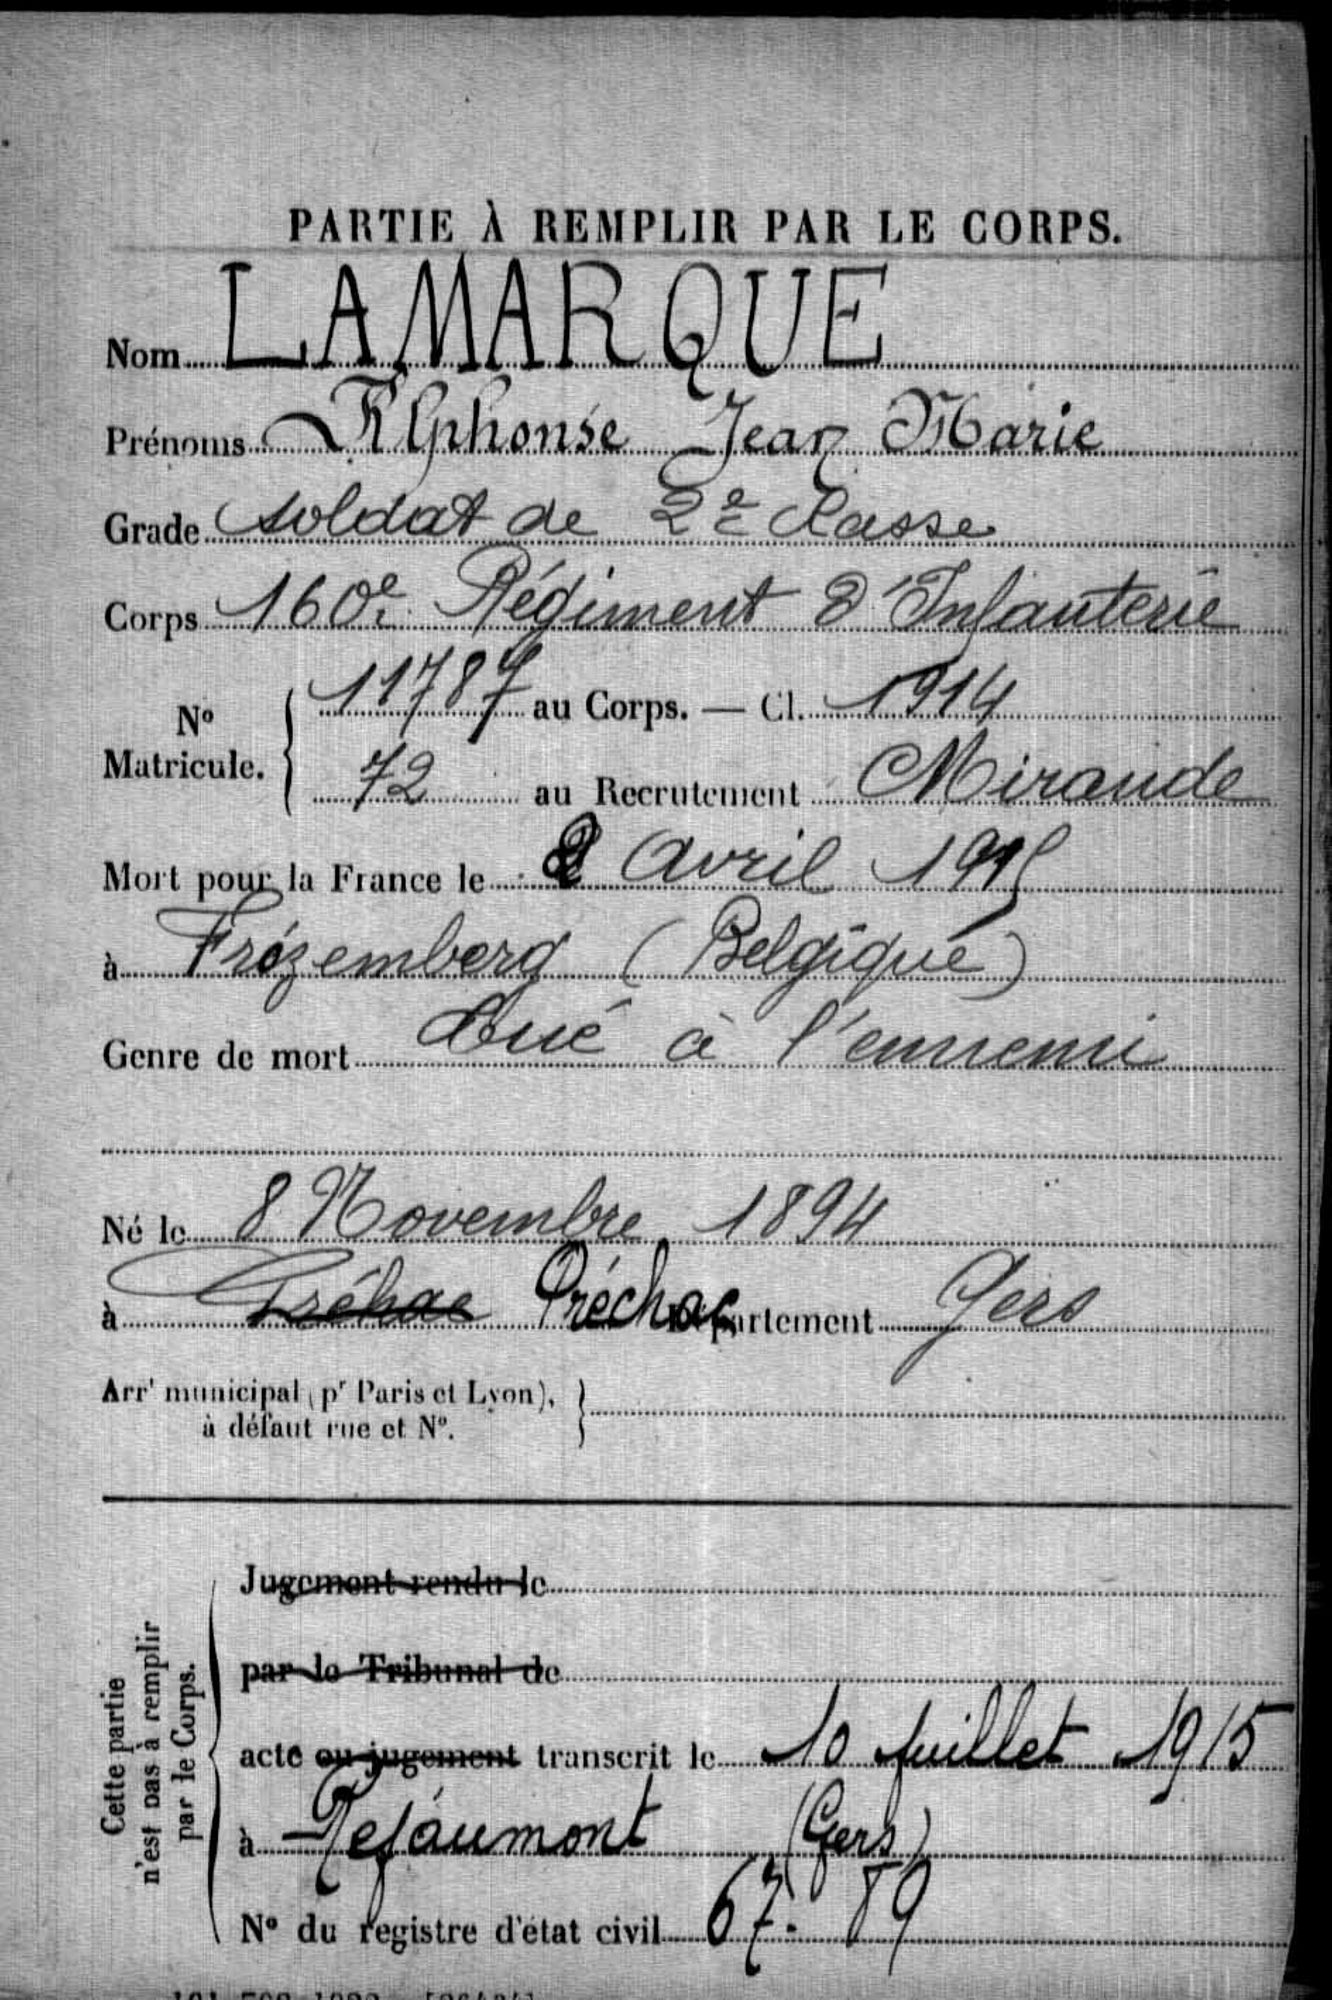 PARTIE À REMPLIR PAR LE CORPS.
Nom LAMARQUE
Prénoms Alphonse Jean Marie
Grade soldat de 2e Classe
Corps 160e Régiment d'Infanterie
N° Matricule. { 11787 au Corps. — Cl. 1914
72 au Recrutement Mirande
Mort pour la France le 2 Avril 1915
à Frézemberg (Belgique)
Genre de mort tué à l'ennemi
Né le 8 Novembre 1894
à Préchac Département Gers
Arrt municipal (pr Paris et Lyon), }
à défaut rue et N°.
Cette partie
n'est pas à remplir
par le Corps.
Jugement rendu le
par le Tribunal de
acte ou jugement transcrit le 10 Juillet 1915
à Réjaumont (Gers)
N° du registre d'état civil 67-89